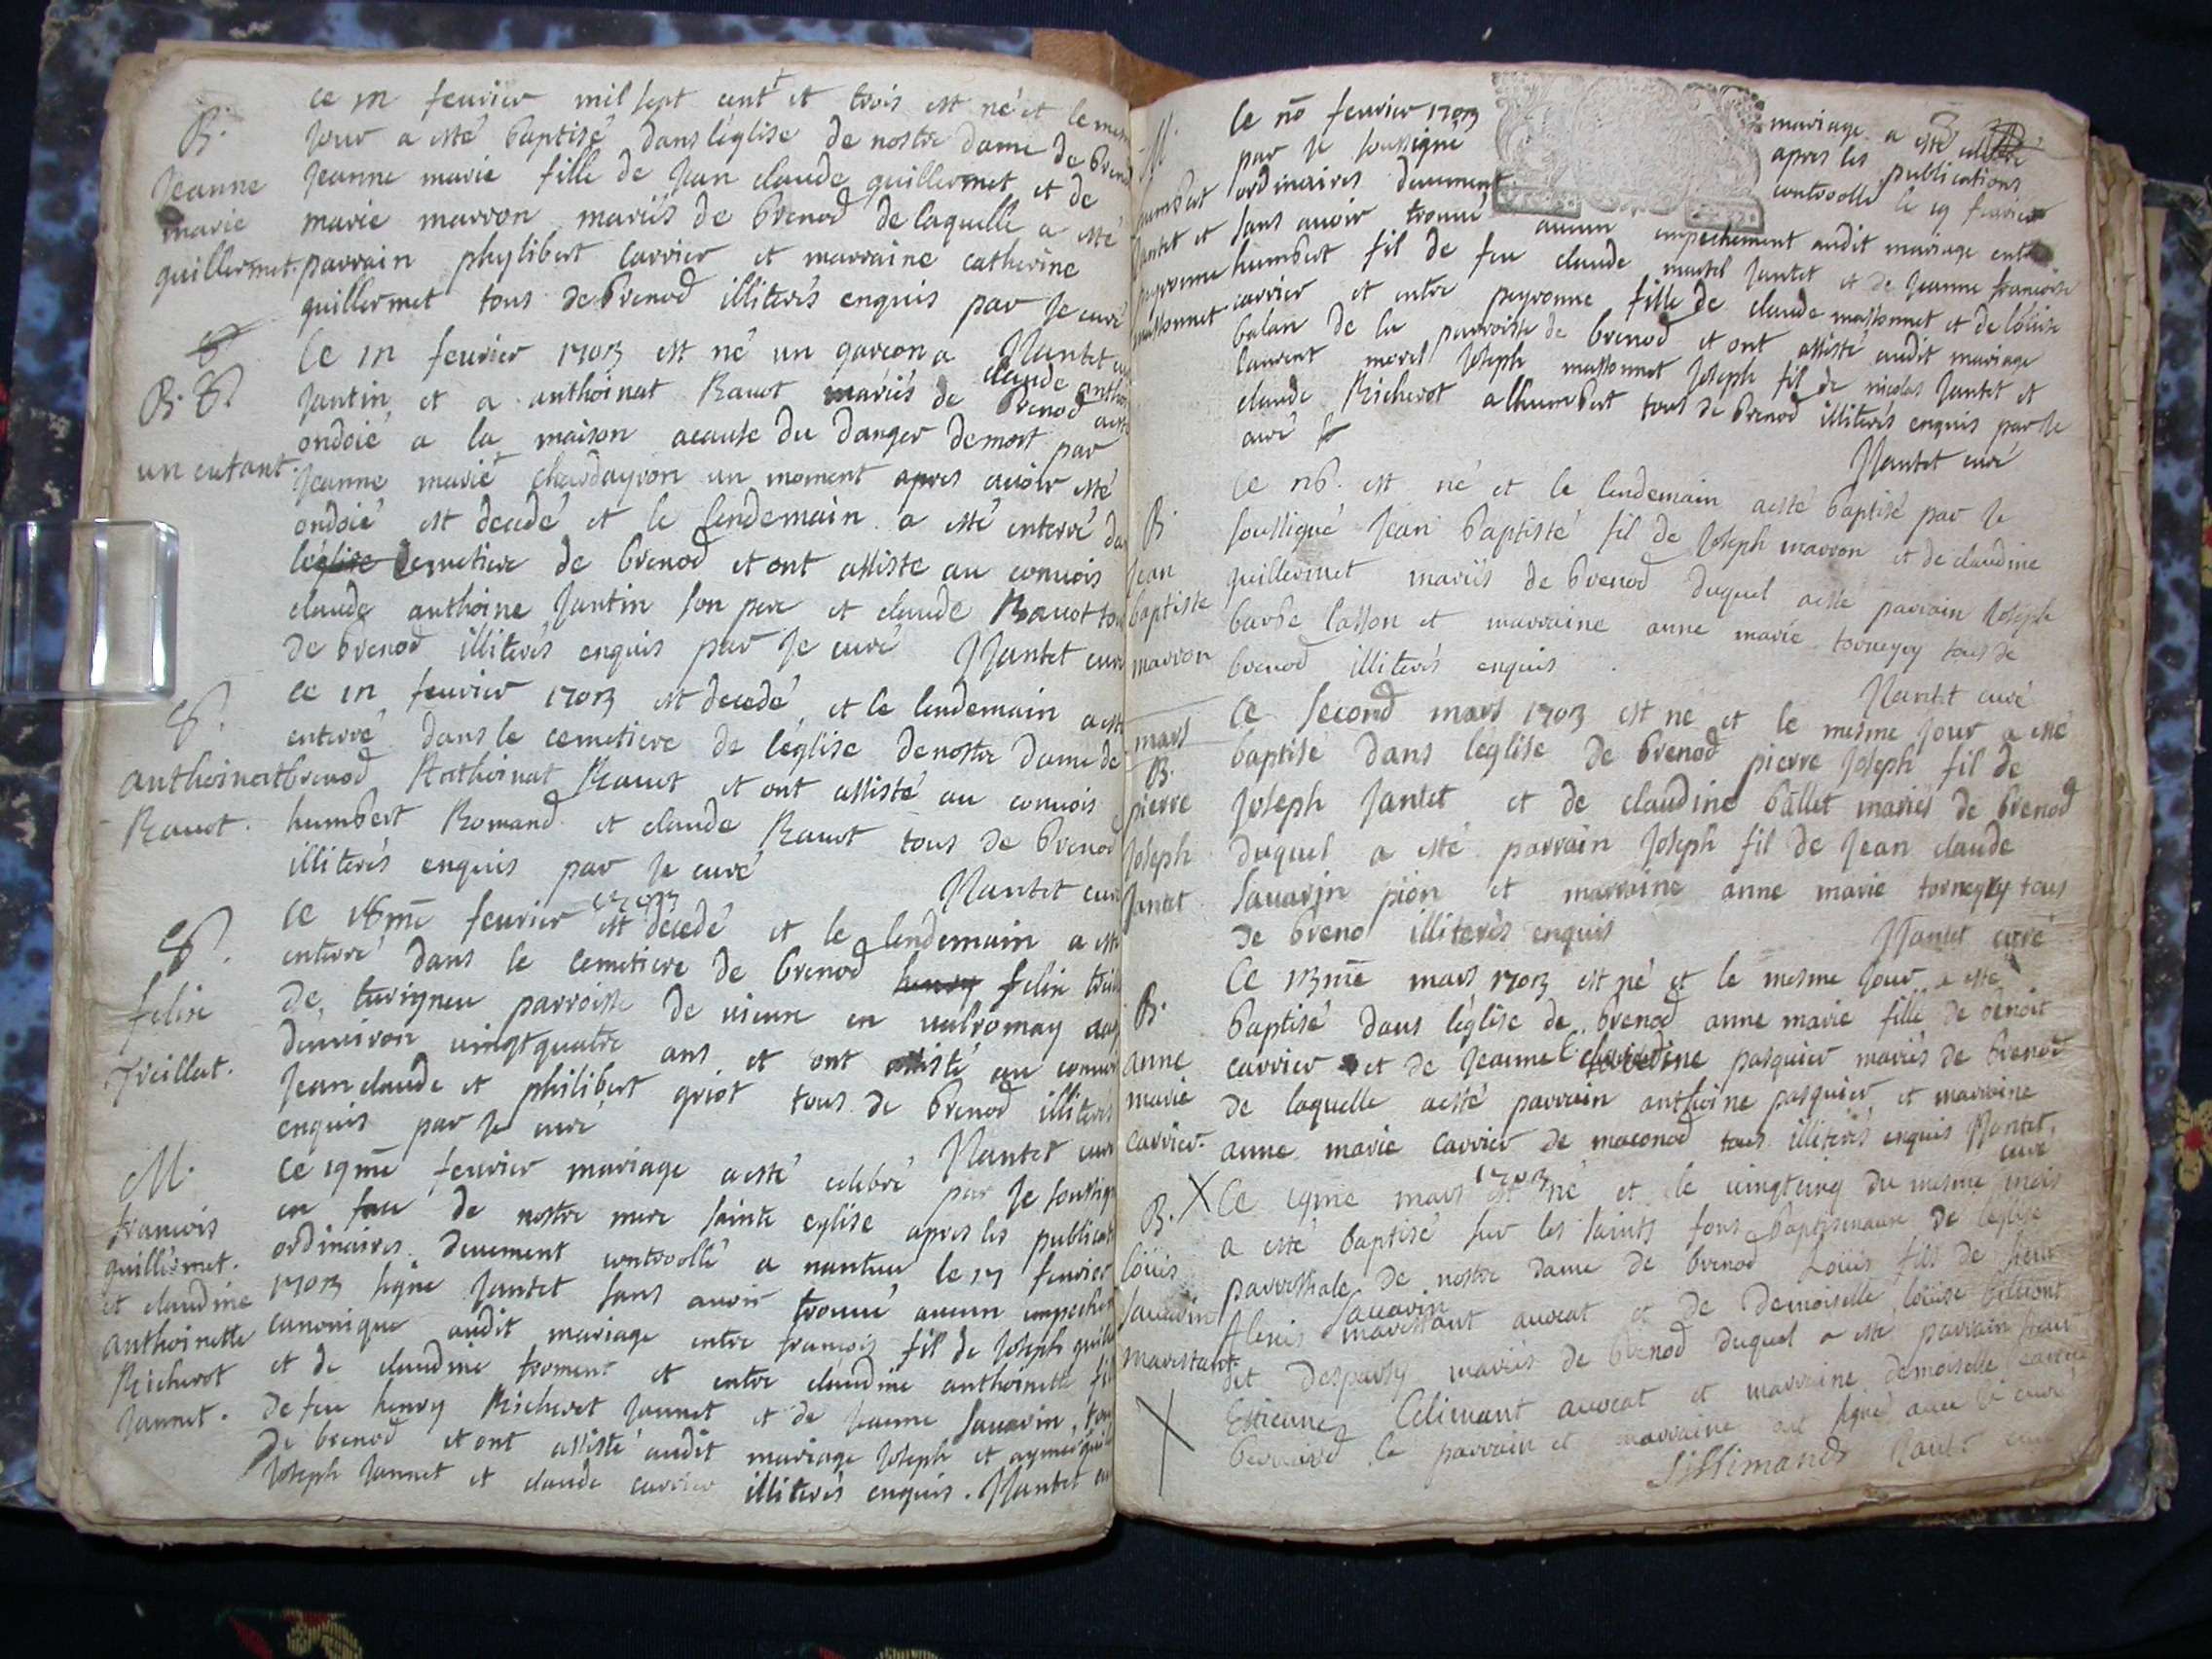 B.
Jeanne
marie
guillermet.
ce feurier mil sept cent et trois est né et le mesm
jour a esté baptisé dans léglise de nostre dame de bren
jeanne marie fille de jean claude guillermet et de
marie marron mariés de brenod de laquelle a esté
parrain phylibert carrier et marraine catherine
guillermet tous de brenod illiterés enquis par je curé
Jantet cu
B. S.
un enfant
Ce feurier 1703 est né un garcon a claude antho
jantin et a anthoinat Rauot mariés de brenod a esté
ondoié a la maison acause du danger de mort par
jeanne marie chardayron un moment apres auoir esté
ondoié est decedé et le lendemain a esté enterré da
léglise cemetiere de brenod et ont assiste au conuois
claude anthoine jantin son pere et claude Rauot tou
de brenod illiterés enquis par je curé Jantet cur
S.
anthoinat
Rauot.
Ce feurier 1703 est decedé et le lendemain a est
enterré dans le cemetiere de leglise de nostre dame de
brenod Anthoinat Rauot et ont assisté au conuois
humbert Romand et claude Rauot tous de brenod
illiterés enquis par je curé
Jantet cur
S.
felix
Treillat.
Ce feurier 1703 est decedé et le lendemain a est
enterré dans le cemetiere de brenod henry felix treil
de turigneu parroisse de uieux en ualromay aag
denuiron uingtquatre ans et ont assisté au conuoi
jean claude et philibert griot tous de brenod illiteres
enquis par je curé
Jantet cur
M.
francois
guillermet.
et claudine
anthoinette
Richerot
jannet.
Ce 19me feurier mariage a esté celebré par je soussign
en face de nostre mere sainte eglise apres les publicat
ordinaires duement controollé a nantua le 17 feurier
1703 signe jantet sans auoir trouué aucun empeschem
canonique audit mariage entre francois fil de joseph guille
et de claudine froment et entre claudine anthoinette fil
de feu henry Richerot jannet et de jeanne sauarin, tou
de brenod et ont assisté audit mariage joseph et aymé guill
joseph jannet et claude carrier illiterés enquis. Jantet cu
M.
humbert
jantet et
peyronne
massonnet
Ce feurier 1703 mariage a esté celebré
par je soussigné apres les publications
ordinaires duement controollé le 19 feurier
sans auoir trouué aucun empechement audit mariage entre
humbert fil de feu claude martel jantet et de jeanne francoise
carrier et entre peyronne fille de claude massonnet et de louise
balan de la parroisse de brenod et ont assisté audit mariage
laurent morel joseph massonnet joseph fil de nicolas jantet et
claude Richerot alhumbert tous de brenod illiterés enquis par je
curé
Jantet curé
B.
jean
baptiste
marron
Ce est né et le lendemain a esté baptisé par je
soussigné jean baptisté fil de joseph marron et de claudine
guillermet mariés de brenod duquel a esté parrain joseph
barbe lasson et marraine anne marie tornegry tous de
brenod illiterés enquis.
Jantet curé
mars
B.
pierre
joseph
jantet
Ce second mars 1703 est né et le mesme jour a esté
baptisé dans léglise de brenod pierre joseph fil de
joseph jantet et de claudine ballet mariés de brenod
duquel a esté parrain joseph fil de jean claude
sauarin pion et marraine anne marie tornegry tous
de breno illiterés enquis
Jantet curé
B.
anne
marie
carrier.
Ce 13me mars 1703 est né et le mesme jour a esté
baptisé dans léglise de brenod anne marie fille de benoit
carrier et de jeanne claudine pasquier mariés de brenod
de laquelle a esté parrain anthoine pasquier et marraine
anne marie carrier de maconod tous illiterés enquis Jantet
curé
B. X
louis
sauarin
marestant.
X
Ce 19me mars 1703 est né et le uingtcinq du mesme mois
a esté baptisé sur les saints fons baptismaux de léglise
parrossiale de nostre dame de brenod Louis fils de sieur
Alexis sauarin marestant auocat et de Demoiselle louise
dit Desparsy mariés de brenod duquel a esté parrain sieur
Estienne auocat et marraine demoiselle
le parrain et marraine ont signé auec le curé
Jantet curé